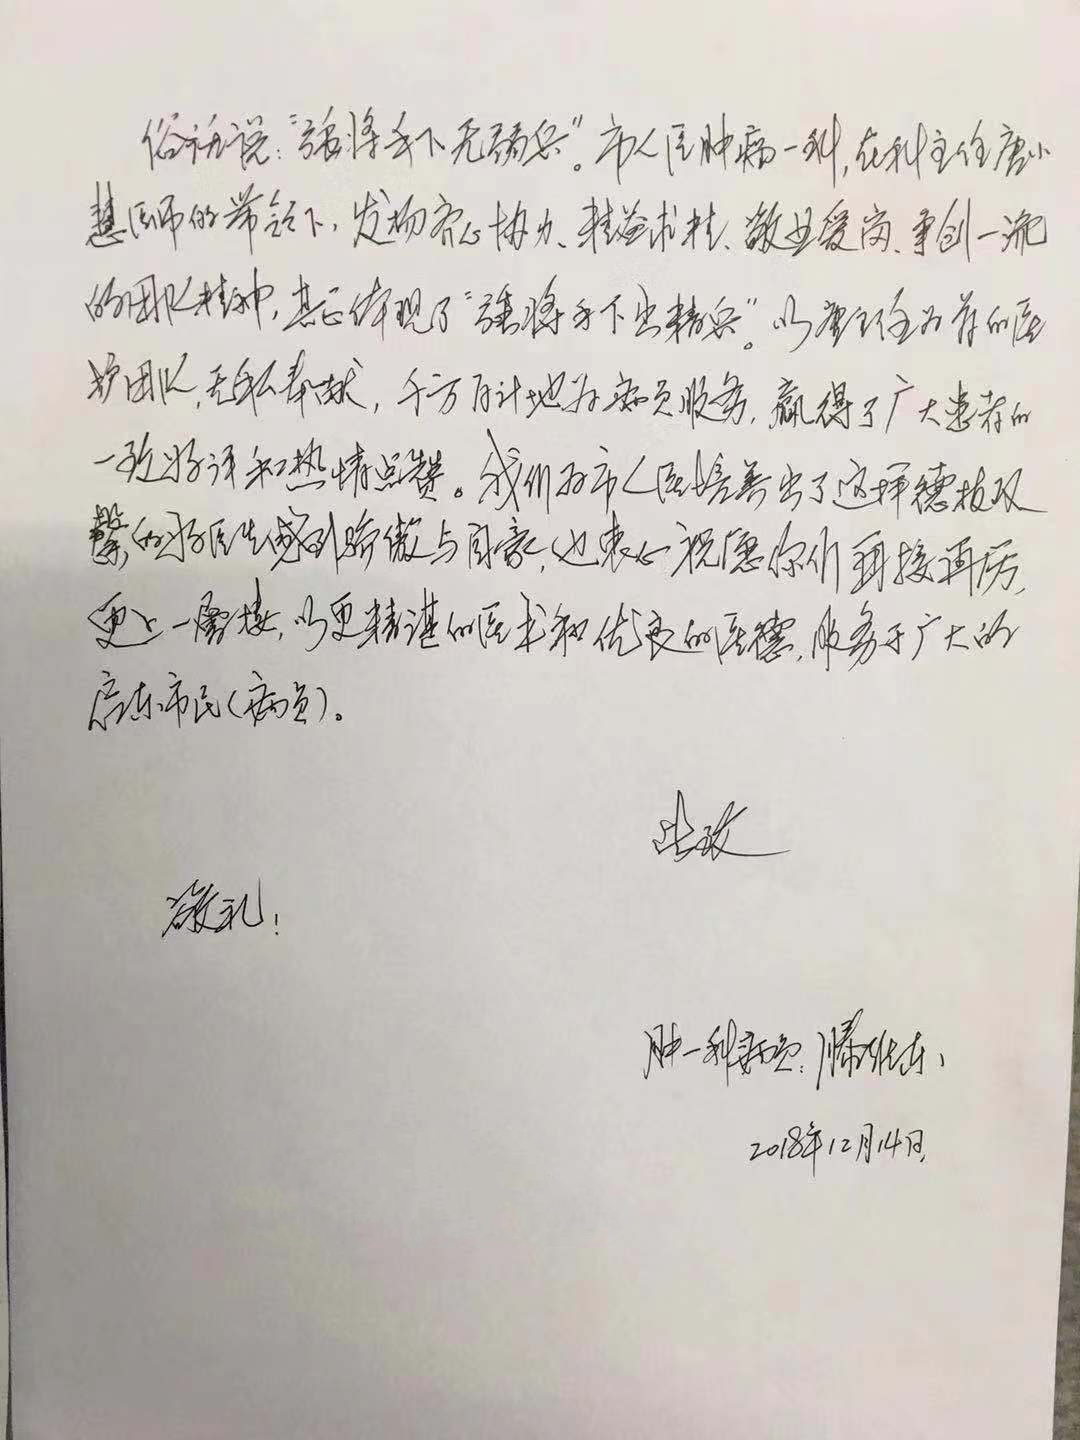 俗话说：“强将手下无弱兵”。市人医肿瘤一科，在科主任唐小
慧医师的带领下，发扬齐心协力、精益求精、敬业爱岗、争创一流
的团队精神，真正体现了“强将手下出精兵”。以唐主任为首的医
护团队，无私奉献，千方百计地为病员服务，赢得了广大患者的
一致好评和热情点赞。我们为市人医培养出了这样德技双
馨的好医生感到骄傲与自豪，也衷心祝愿你们再接再厉，
更上一层楼，以更精湛的医术和优良的医德，服务于广大的
启东市民（病员）。
此致
敬礼！
肿一科病员：
2018年12月14日